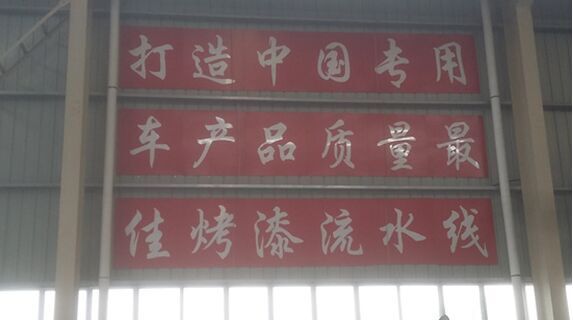 打造中国专用
车产品质量最
佳烤漆流水线